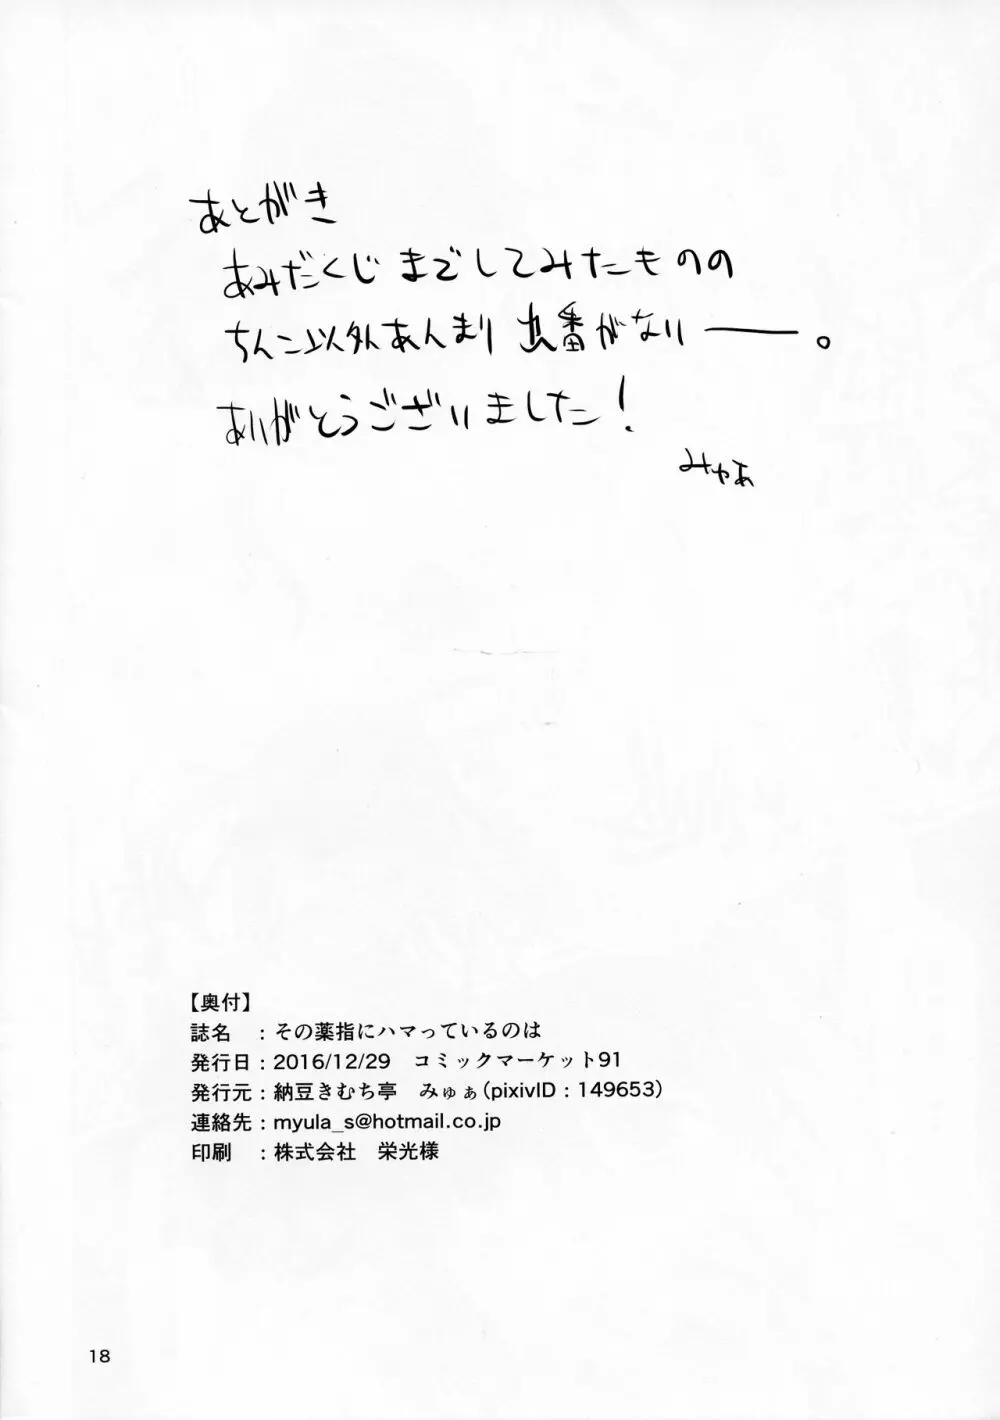 あとがき
あみだくじまでしてみたものの
ちんこ以外あんまり出番がないーー。
ありがとうございました!
みゅあ
【奥付】
誌名 : その薬指にハマっているのは
発行日 : 2016/12/29 コミックマーケット91
発行元 : 納豆きむち亭 みゅぁ(pixivID : 149653)
連絡先 : myula_s@hotmail.co.jp
印刷 : 株式会社 栄光様
18